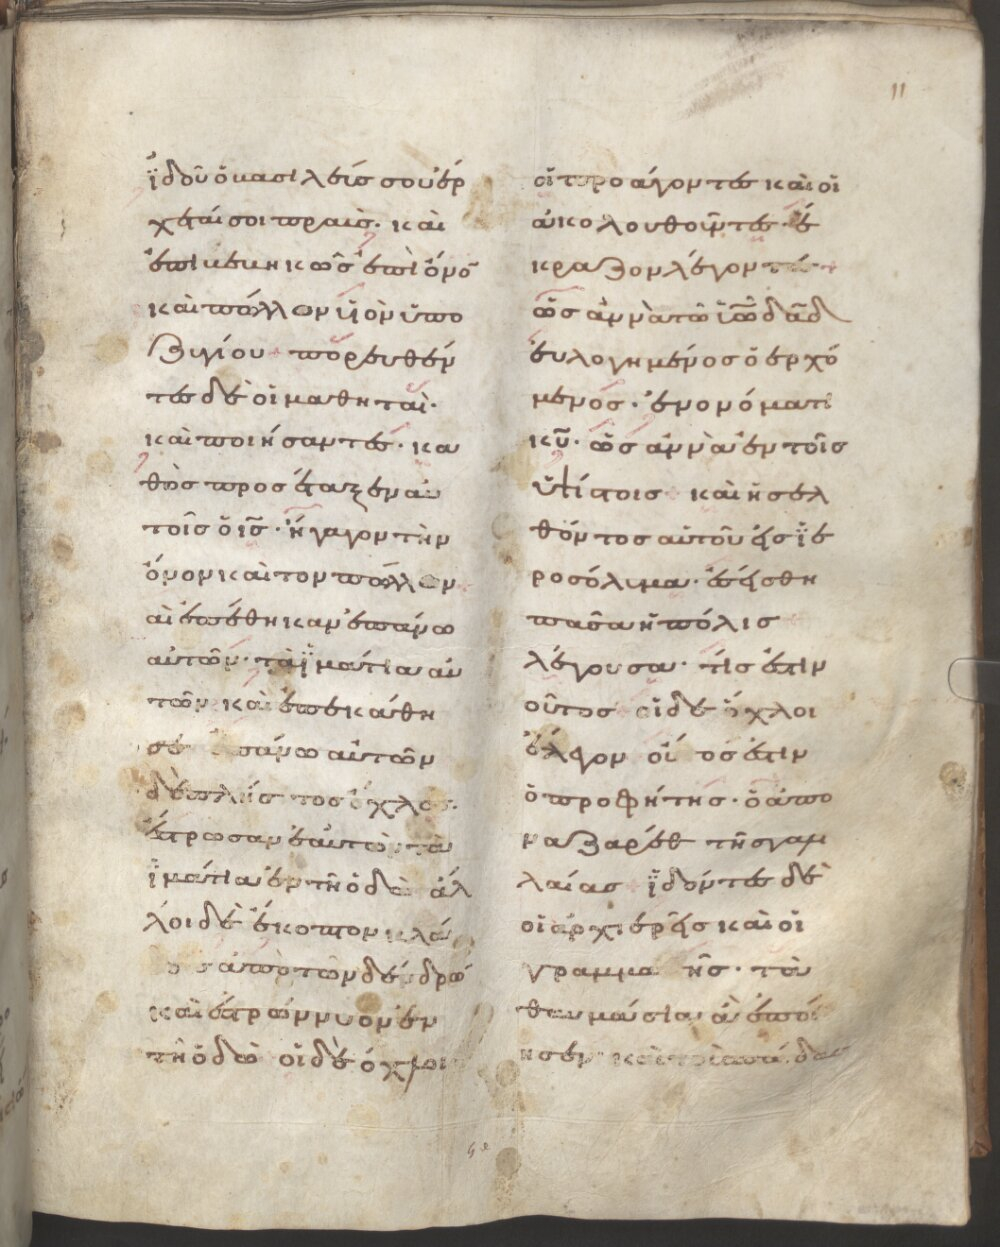 11
ἰδοῦ ὁ βασιλεύς σου ἔρ
χεταί σοι πραὺς· καὶ
ἐπιβεβηκὼς ἐπὶ ὄνο̄
καὶ πῶλλον ὑϊὸν ὑπο
ζυγίου + πορευθέν
τες δὲ οἱ μαθηταὶ·
καὶ ποιήσαντες· κα
θὼς προσέταξεν αὐ
τοῖς ὁ ις̄· ἤγαγον τὴν
ὄνον καὶ τον πῶλλον
αὶ ἐπέθηκαν ἐπάνω
αυτῶν· τὰ ἱμάτια αυ
τῶν καὶ ἐπεκάθη
σε σάνω αὐτῶν
δὲ πλεῖστος ὄχλος·
ἔστρωσαν ἑαυτῶν τὰ
ἱμάτια ἐν τῆ ὁδῶ ἀλ
λοι δὲ ἔκοπτον κλά
ἀπὸ τῶν δένδρω̄
καὶ ἐστρώννυον ἐν
τῆ ὁδῶ οἱ δὲ ὄχλοι
οἱ προάγοντες καὶ οἱ
ἀκολουθοῦντες· ἔ
κραζον λέγοντες +
ὡσαννὰ τῶ ὑῶ δᾱδ
ἐυλογημένος ὁ ερχό
μενος· ἐν ονόματι
κῡ· ὡσαννὰ ἐν τοῖς
ὑψίστοις + καὶ ἠσελ
θόντος αὐτοῦ εἰς ἱε
ροσόλυμα· ἐσείσθη
πᾶσα ἡ πόλις
λέγουσα· τίς ἐστιν
οὗτος οἱ δὲ ὄχλοι
ἔλεγον οὗ τος ἐστιν
ὁ προφήτης· ὁ ἀπο
ναζαρὲθ τῆς γαλι
λαίας + ἰδόντες δὲ
οἱ ἀρχιερεῖς καὶ οἱ
γραμμα εῖς· τὰ
θαυμάσια ἃ ἐποί
ησεν· καὶ τοὺς παῖδας